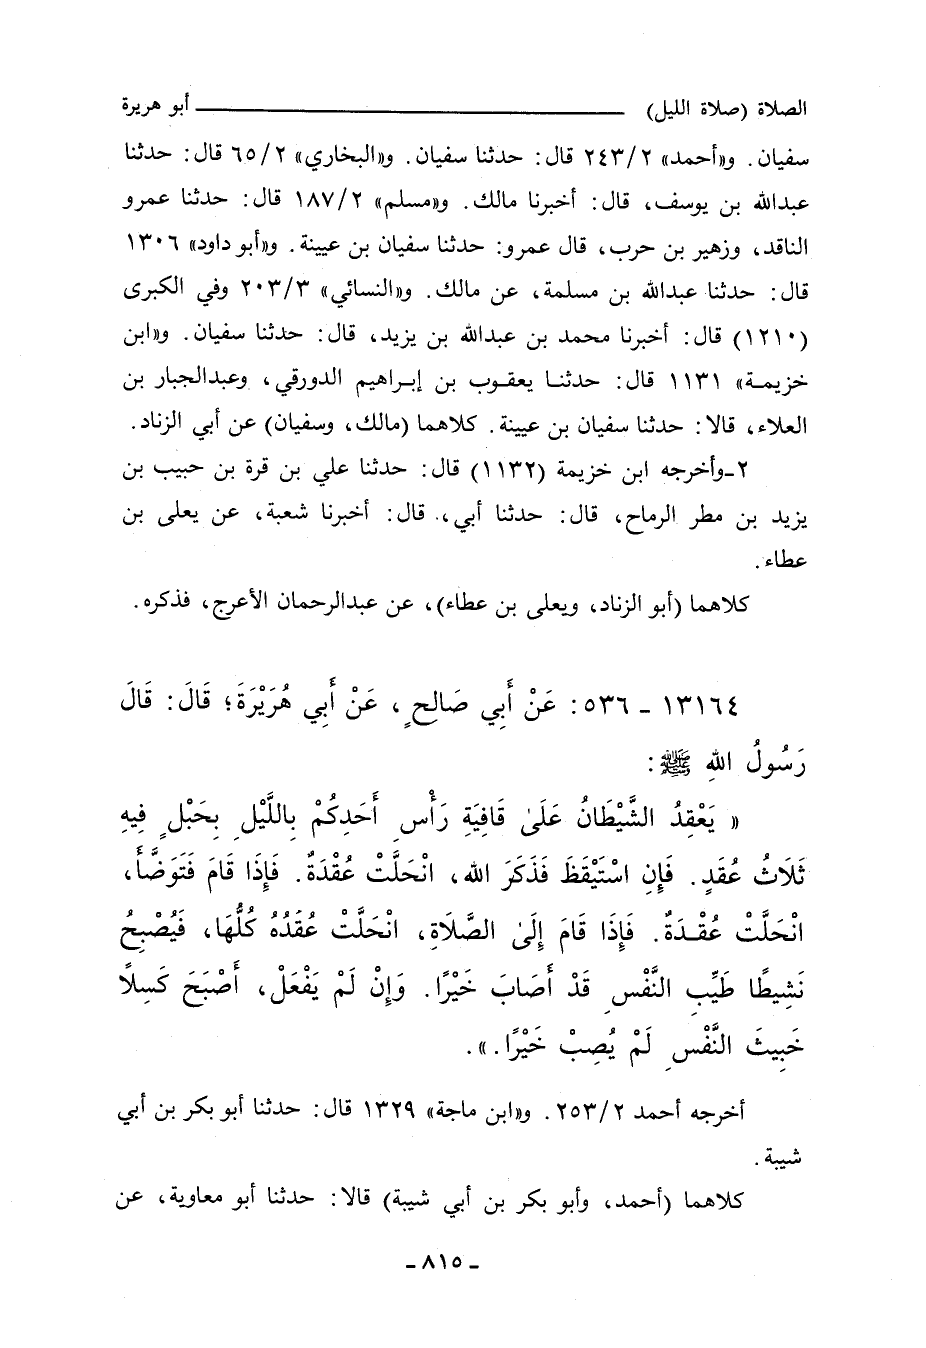 الصلاة (صلاة الليل) أبو هريرة
سفيان. و«أحمد» ٢٤٣/٢ قال: حدثنا سفيان. و«البخاري» ٦٥/٢ قال: حدثنا
عبدالله بن يوسف، قال: أخبرنا مالك. و«مسلم» ١٨٧/٢ قال: حدثنا عمرو
الناقد، وزهير بن حرب، قال عمرو: حدثنا سفيان بن عيينة. و«أبو داود» ١٣٠٦
قال: حدثنا عبدالله بن مسلمة، عن مالك. و«النسائي» ٢٠٣/٣ وفي الكبرى
(١٢١٠) قال: أخبرنا محمد بن عبدالله بن يزيد، قال: حدثنا سفيان. و«ابن
خزيمة» ١١٣١ قال: حدثنا يعقوب بن إبراهيم الدورقي، وعبدالجبار بن
العلاء، قالا: حدثنا سفيان بن عيينة. كلاهما (مالك، وسفيان) عن أبي الزناد.
٢ـ وأخرجه ابن خزيمة (١١٣٢) قال: حدثنا علي بن قرة بن حبيب بن
يزيد بن مطر الرماح، قال: حدثنا أبي، قال: أخبرنا شعبة، عن يعلى بن
عطاء.
كلاهما (أبو الزناد، ويعلى بن عطاء)، عن عبدالرحمان الأعرج، فذكره.
١٣١٦٤ ـ ٥٣٦: عَنْ أَبِي صَالِحٍ، عَنْ أَبِي هُرَيْرَةَ؛ قَالَ: قَالَ
رَسُولُ اللهِ ﷺ:
« يَعْقِدُ الشَّيْطَانُ عَلَىٰ قَافِيَةِ رَأْسِ أَحَدِكُمْ بِاللَّيْلِ بِحَبْلٍ فِيهِ
ثَلَاثُ عُقَدٍ. فَإِنِ اسْتَيْقَظَ فَذَكَرَ الله، انْحَلَّتْ عُقْدَةٌ. فَإِذَا قَامَ فَتَوَضَّأَ،
انْحَلَّتْ عُقْدَةٌ. فَإِذَا قَامَ إِلَىٰ الصَّلَاةِ، انْحَلَّتْ عُقَدُهُ كُلُّهَا، فَيُصْبِحُ
نَشِيطًا طَيِّبَ النَّفْسِ قَدْ أَصَابَ خَيْرًا. وَإِنْ لَمْ يَفْعَلْ، أَصْبَحَ كَسِلًا
خَبِيثَ النَّفْسِ لَمْ يُصِبْ خَيْرًا.».
أخرجه أحمد ٢٥٣/٢. و«ابن ماجة» ١٣٢٩ قال: حدثنا أبو بكر بن أبي
شيبة.
كلاهما (أحمد، وأبو بكر بن أبي شيبة) قالا: حدثنا أبو معاوية، عن
ـ ٨١٥ ـ